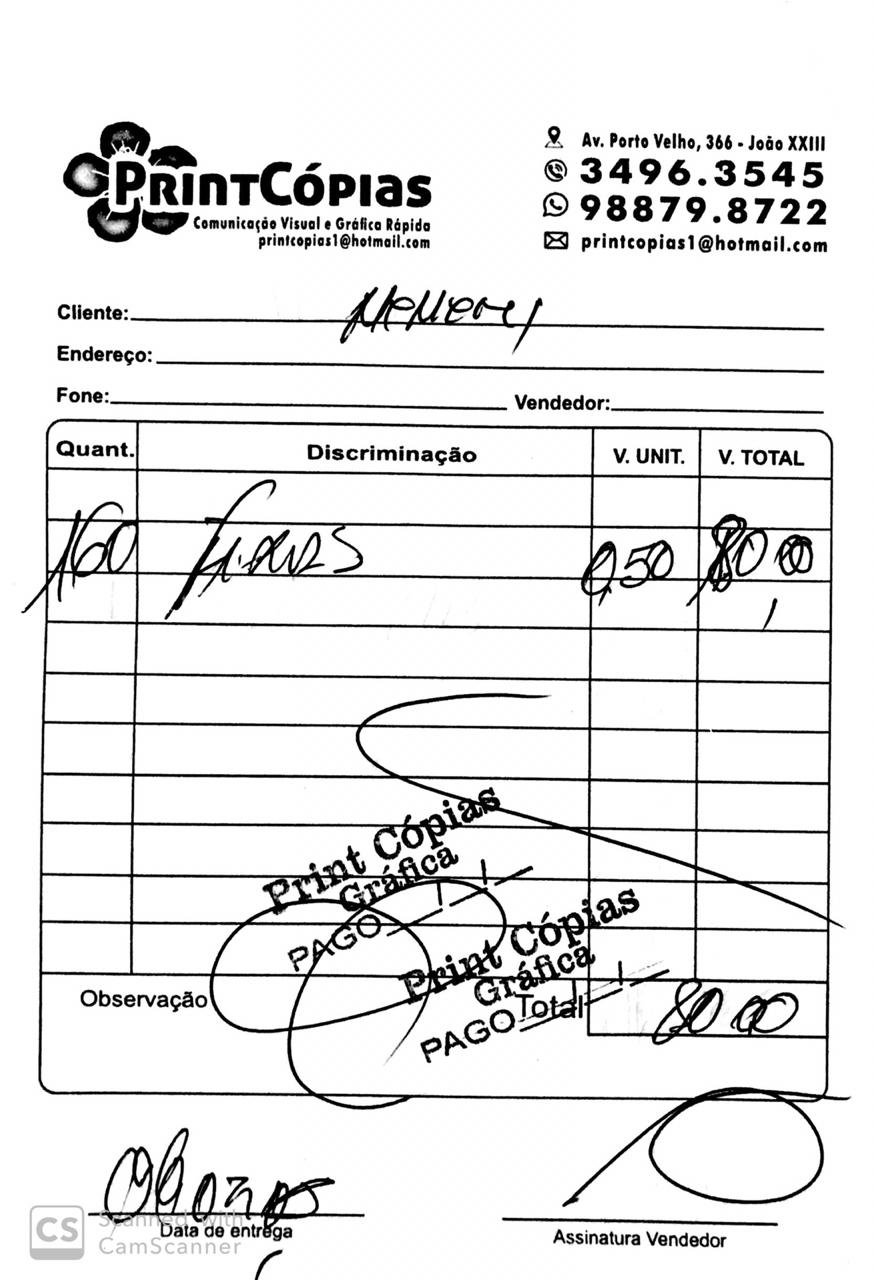 PRINTCÓPIAS
Comunicação Visual e Gráfica Rápida
printcopias1@hotmail.com
Av. Porto Velho, 366 - João XXIII
3496.3545
98879.8722
printcopias1@hotmail.com
Cliente:
Endereço:
Fone: Vendedor:
Quant. Discriminação V. UNIT. V. TOTAL
160 0,50 80,00
Print Cópias
Gráfica
PAGO
Print Cópias
Gráfica
PAGO
Observação Total 80,00
Data de entrega
Assinatura Vendedor
CS Scanned with
CamScanner